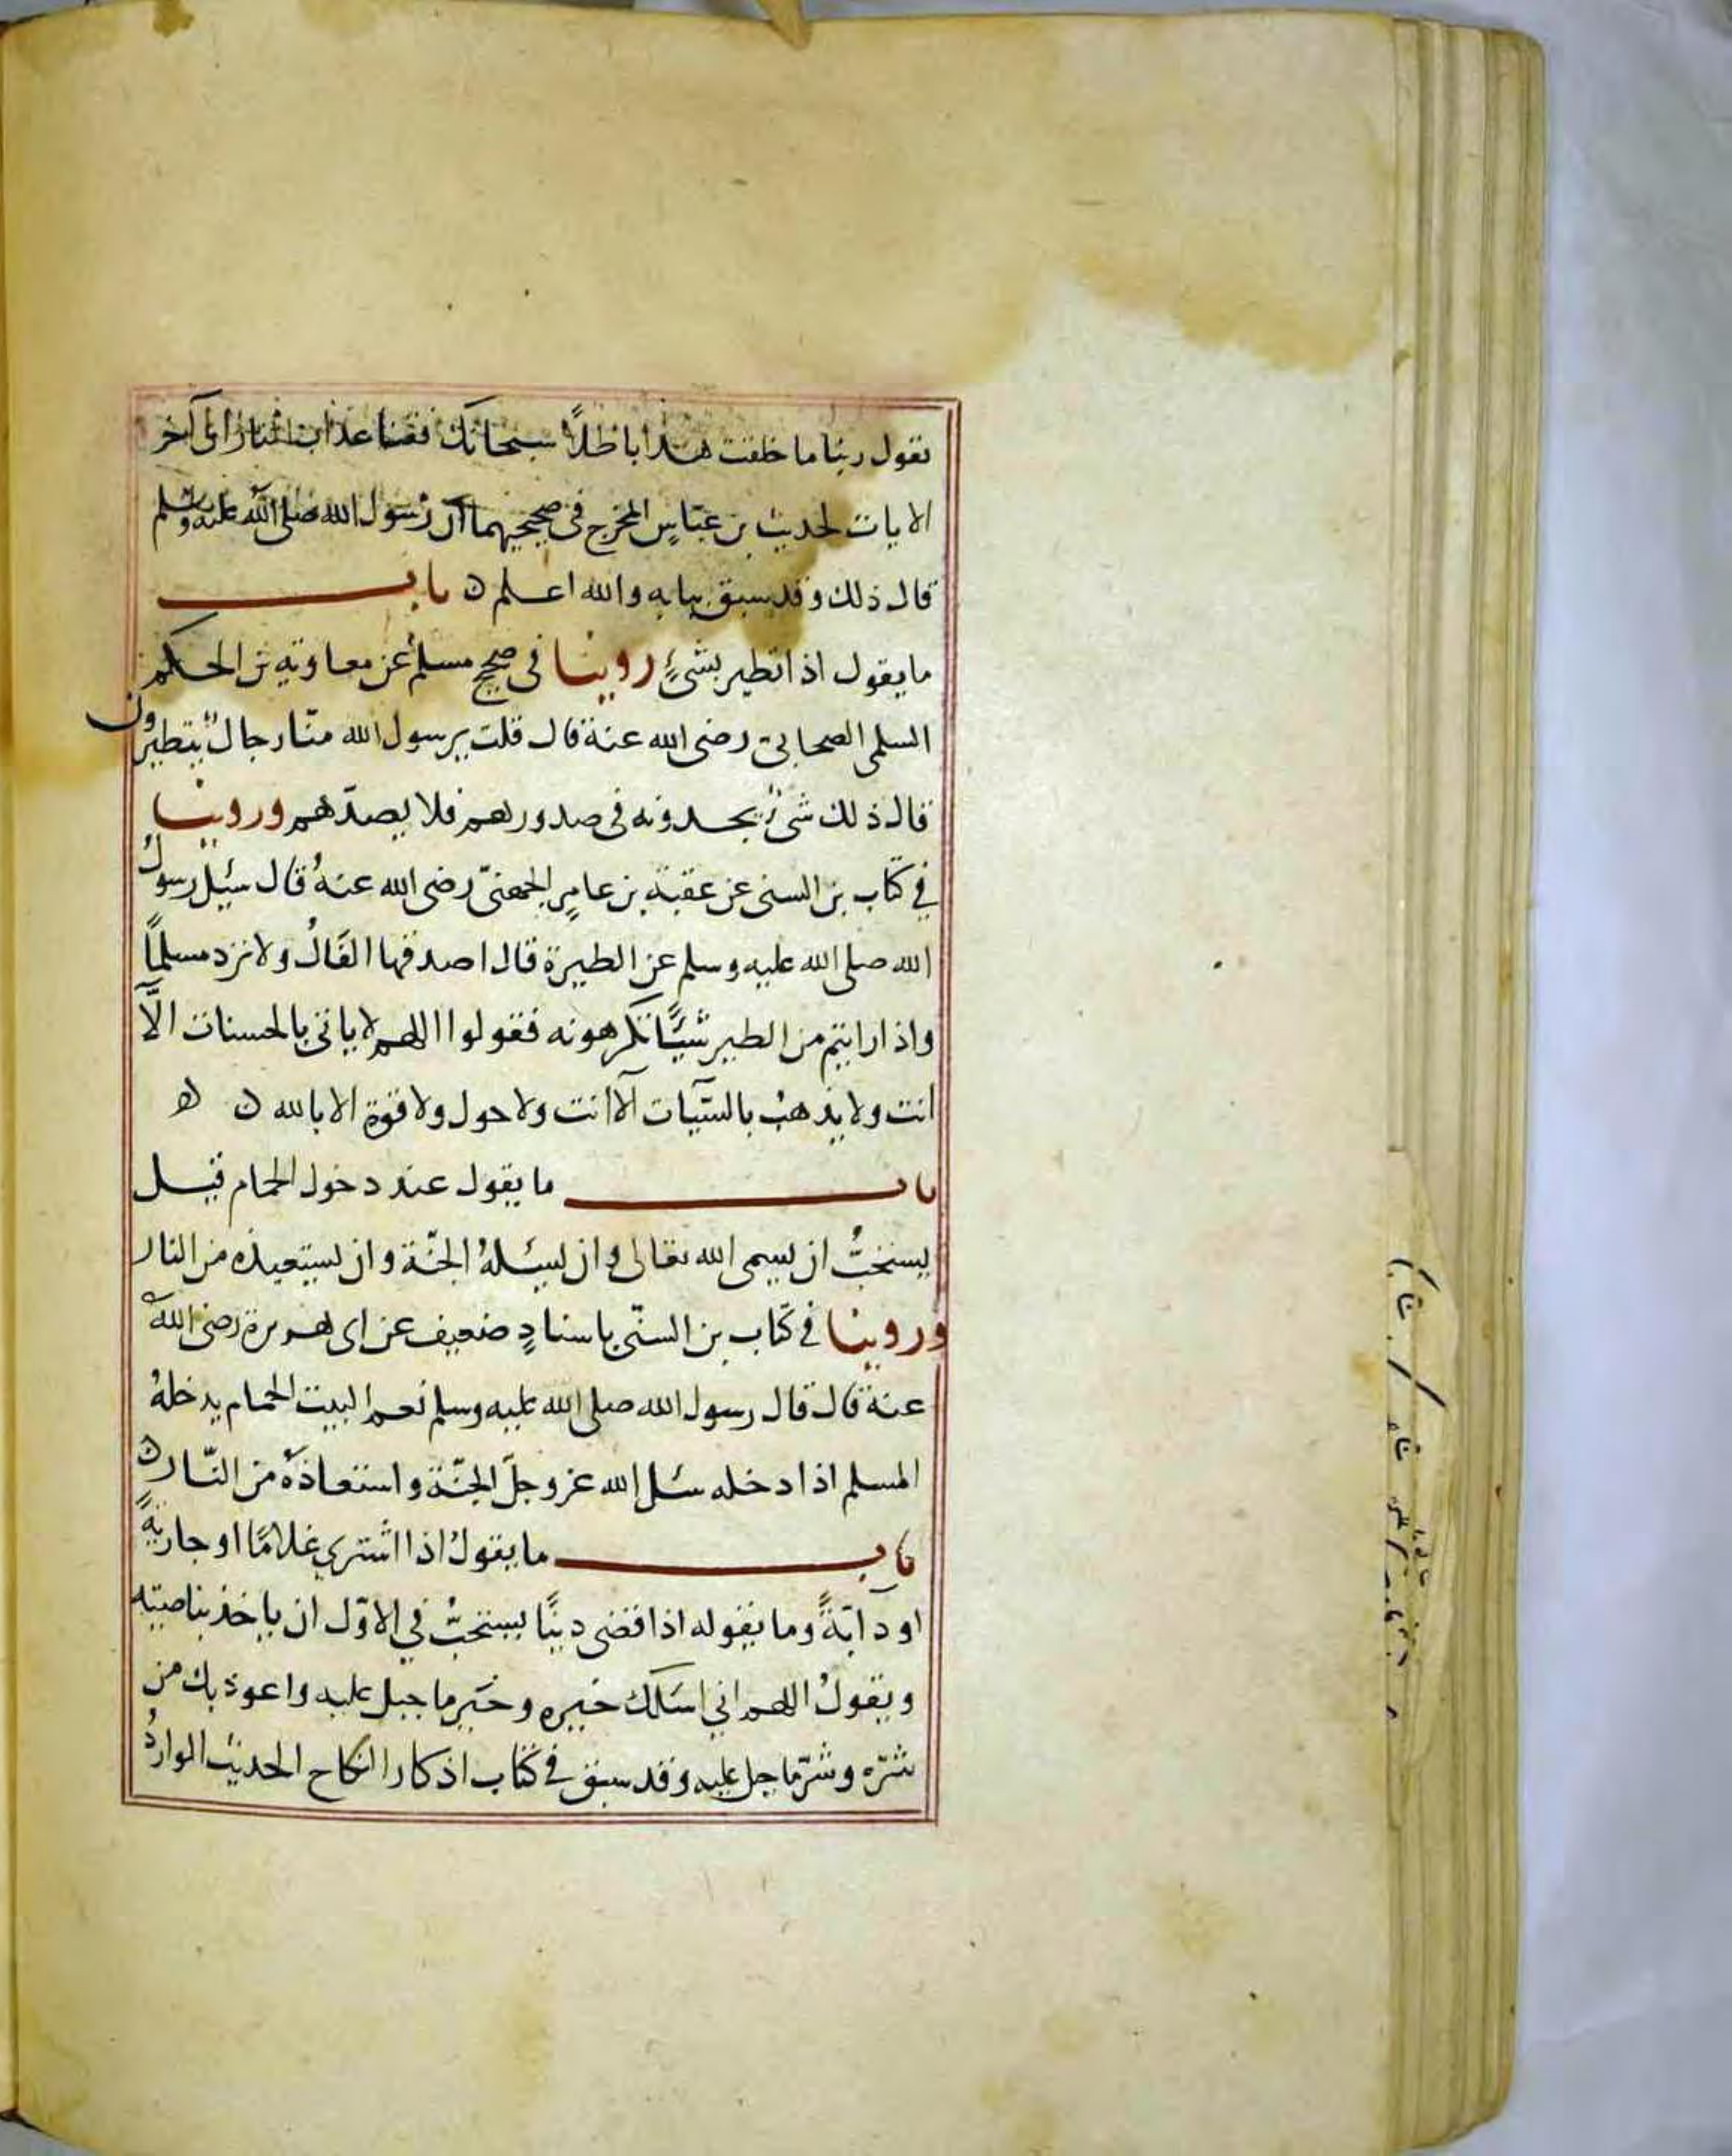 نقول ربنا ما خلقت هذا باطلاً سبحانك فقنا عذاب النار الى آخر
الايات لحديث بن عبّاسٍ المخرج فى صحيحيهما ان رسول الله صلى الله عليه وسلم
قال ذلك وقد سبق بيانه والله اعلم ن باب
ما يقول اذا تطير بشئٍ روينا فى صحيح مسلم عن معاوية بن الحكم
السلمى الصحابى رضى الله عنه قال قلت يرسول الله منّا رجالٌ يتطيرون
قال ذلك شىٌ يجدونه فى صدورهم فلا يصدّهم وروينا
في كتاب بن السنى عن عقبة بن عامرٍ الجهنىّ رضى الله عنهُ قال سئِل رسولُ
الله صلى الله عليه وسلم عن الطيرة قال اصدقها الفَالُ ولا ترد مسلمًا
واذا رايتم من الطير شيئًا تكرهونه فقولوا اللهم لا ياتى بالحسنات الّا
انت ولا يذهبُ بالسّيآت الّا انت ولا حول ولا قوة الا بالله ن ه
باب ما يقول عند دخول الحمام قيل
يستحبُّ ان يسمى الله تعالى وان يسئلهُ الجنّة وان يستعيذه من النار
وروينا في كتاب بن السنّى باسنادٍ ضعيف عن ابى هريرة رضى الله
عنه قال قال رسول الله صلى الله عليه وسلم نعم البيت الحمام يدخلهُ
المسلم اذا دخله سئل الله عز وجلّ الجنّة واستعاذهُ من النّار ن
باب ما يقولُ اذا اشترى غلامًا او جاريةً
او دآبّةً وما يقوله اذا قضى دينًا يستحبُّ في الاوّل ان ياخذ بناصيته
ويقولُ اللهم اني اسَلك خيره وخَير ما جبل عليه واعوذ بك من
شرّه وشرّ ما جبل عليه وقد سبق في كتاب اذكار النكاح الحديث الواردُ